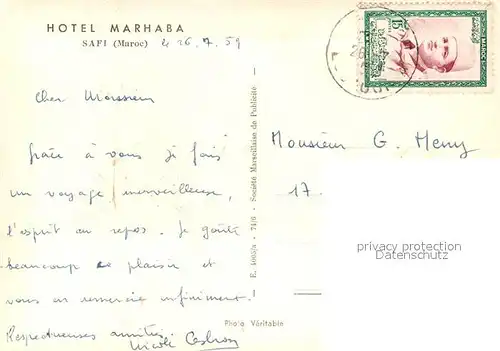 HOTEL MARHABA
SAFI (Maroc) le 26.7.59
Cher Monsieur
grâce à vous je fais
un voyage merveilleux,
l'esprit au repos. Je goûte
beaucoup ce plaisir et
vous en remercie infiniment.
Respectueuses amitiés.
Nicole
E. 4005/a - 74/6 - Société Marseillaise de Publicité
Photo Véritable
15
MAROC
Monsieur G. Henry
17.
privacy protection
Datenschutz